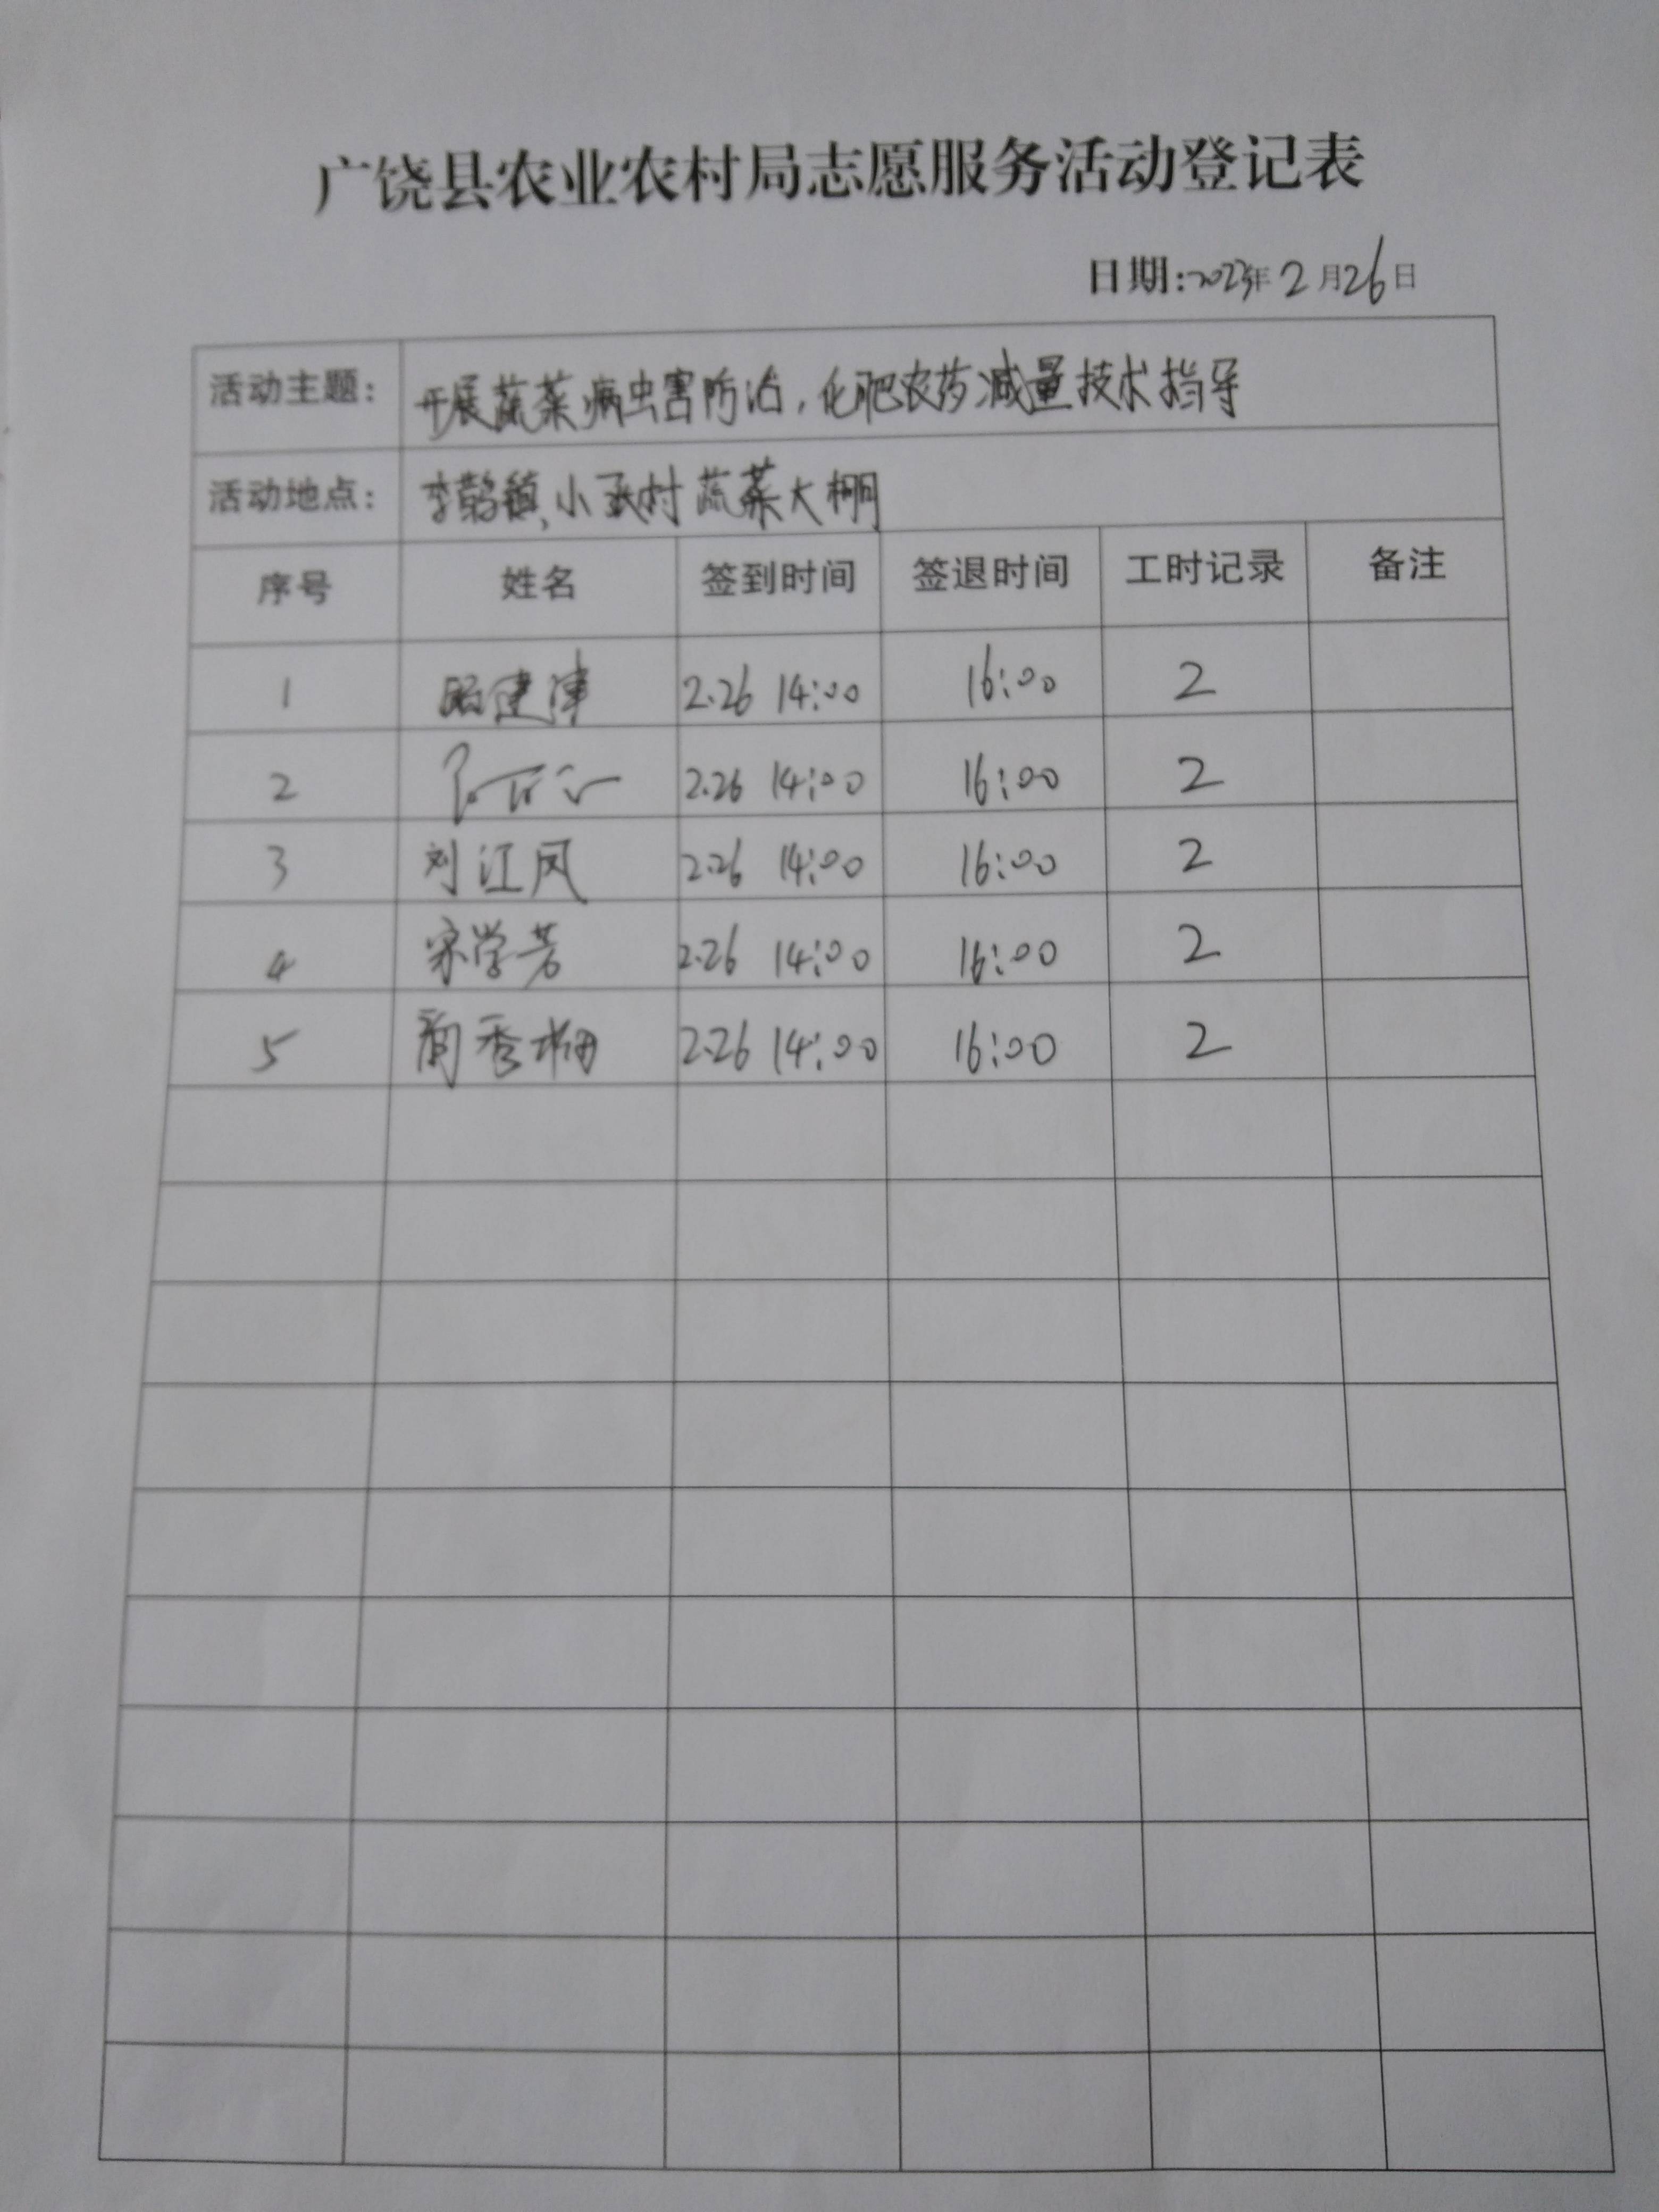 广饶县农业农村局志愿服务活动登记表
日期:2023年2月26日
活动主题: 开展蔬菜病虫害防治,化肥农药减量技术指导
活动地点: 李鹊镇,小张村蔬菜大棚
序号 姓名 签到时间 签退时间 工时记录 备注
1 建津 2.26 14:00 16:00 2
2 2.26 14:00 16:00 2
3 刘江凤 2.26 14:00 16:00 2
4 宋学芳 2.26 14:00 16:00 2
5 秀 2.26 14:00 16:00 2